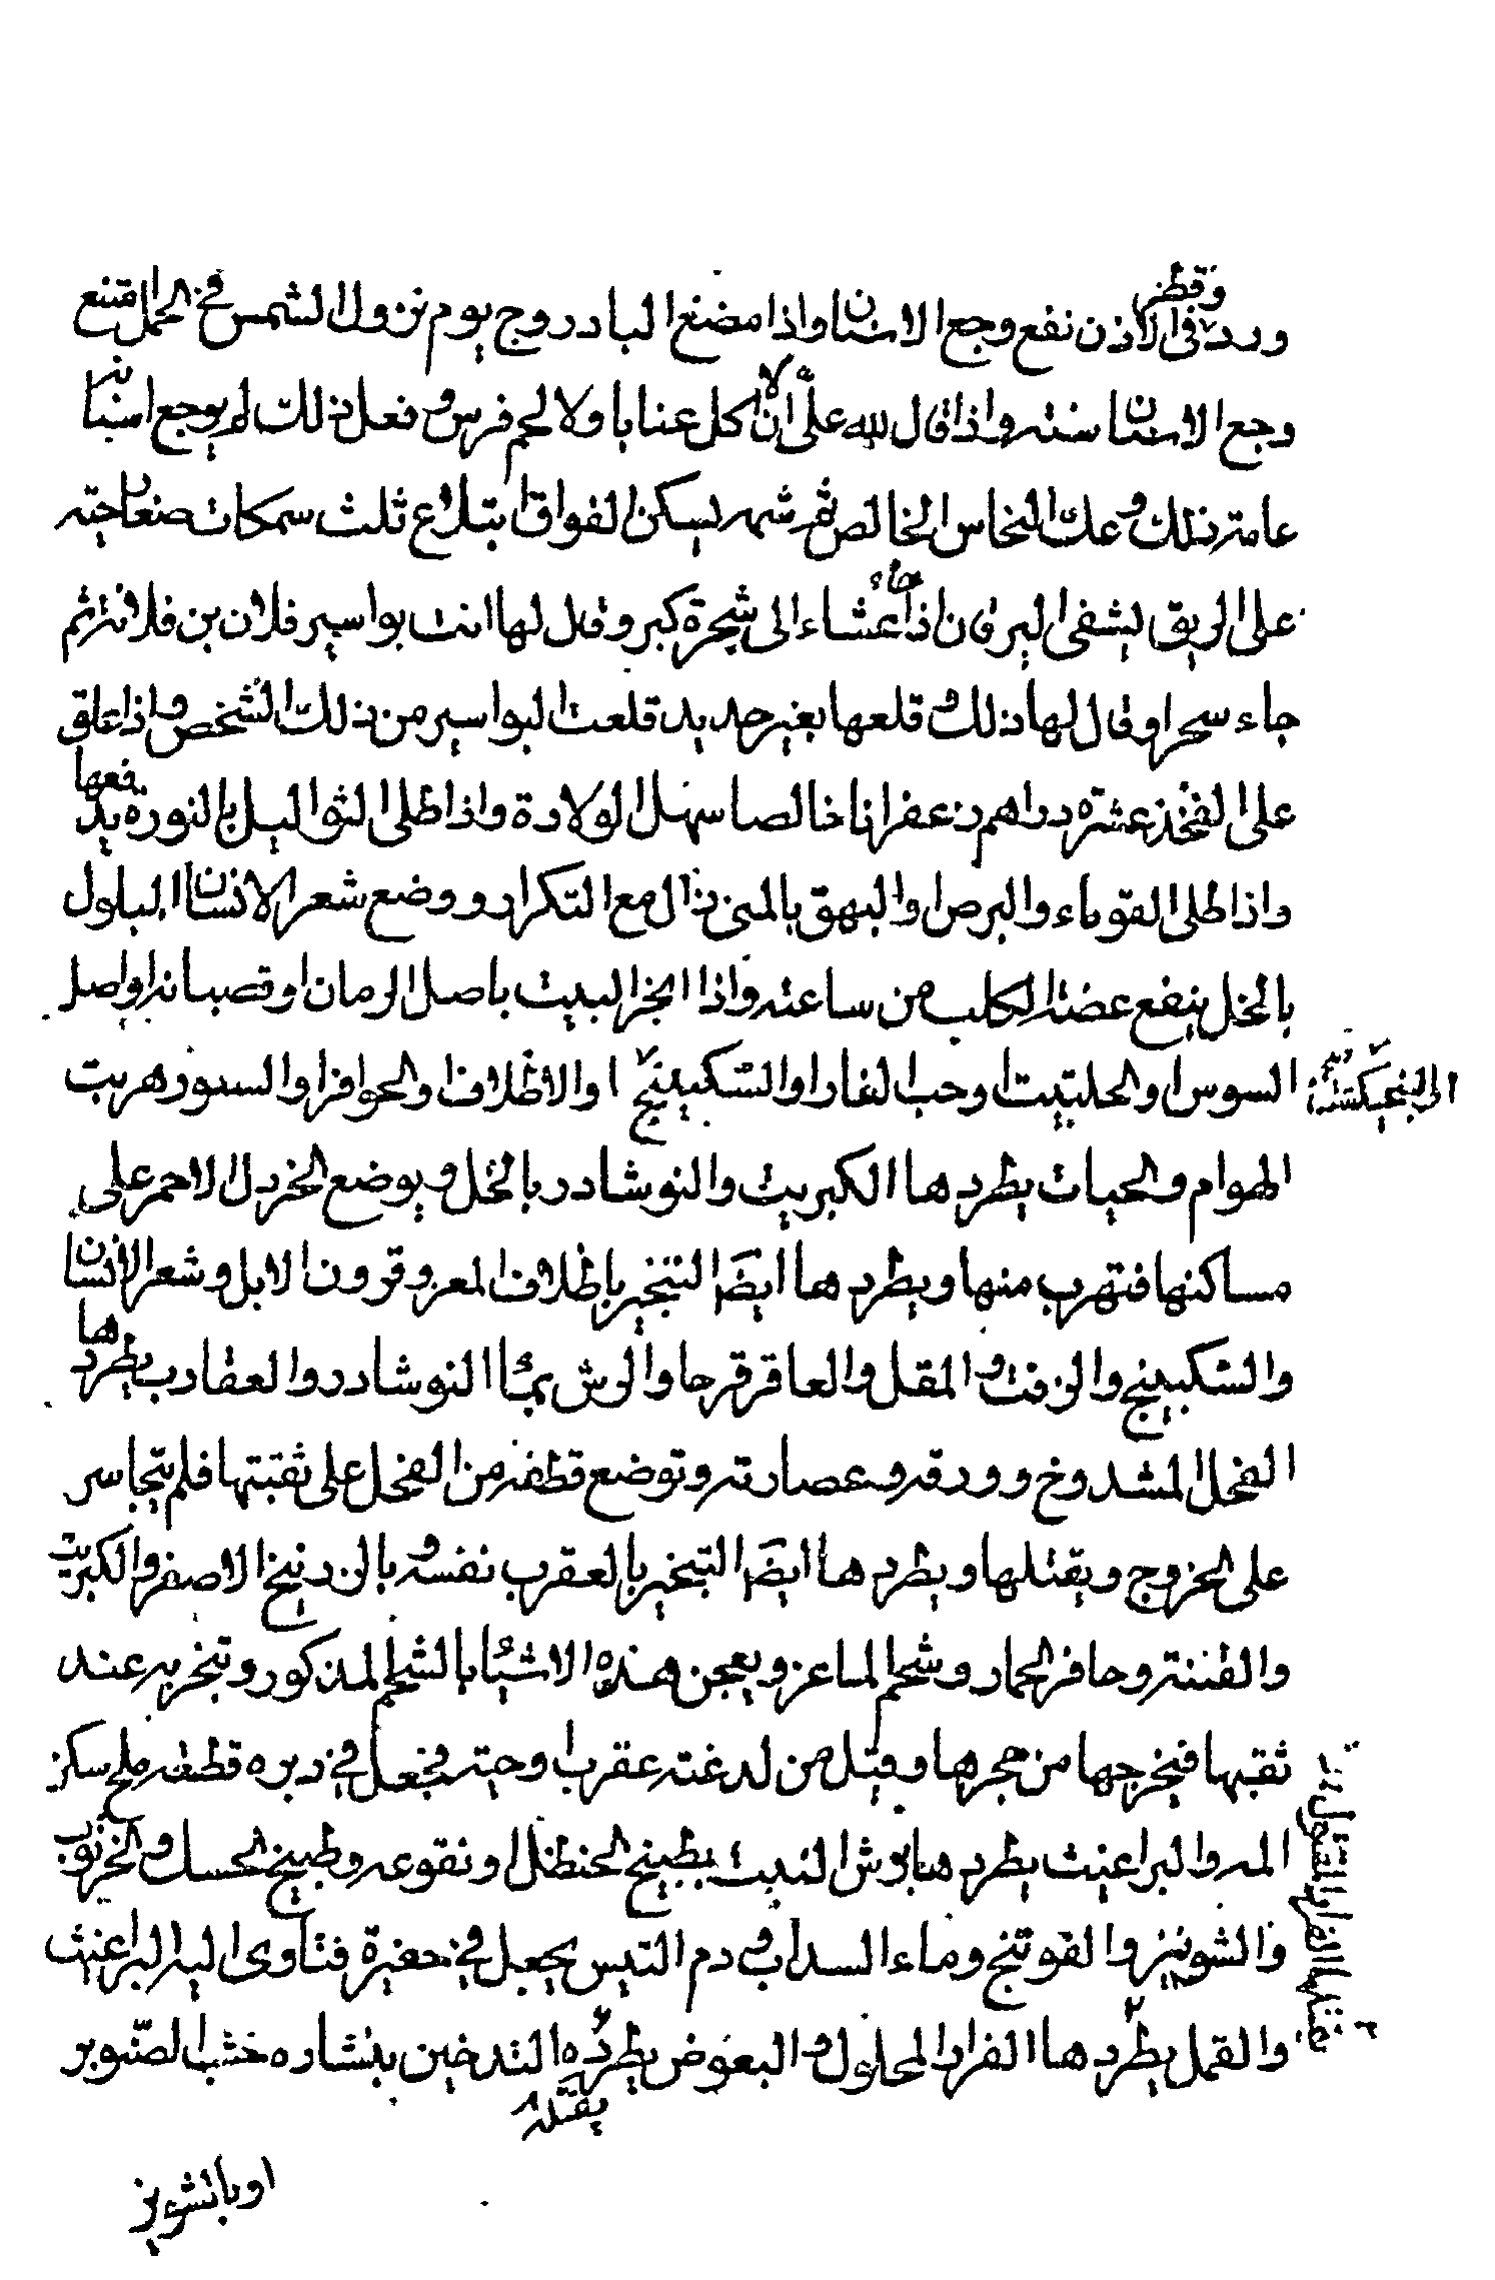 ورد وقطر في الاذن نفع وجع الاسنان واذا مضغ البادروج يوم نزول الشمس في الحمل منع
وجع الاسنان سنته واذا قال لله علي ان لا اكل عنابا ولا لحم فرس وفعل ذلك لم يوجع اسنانه
عامة ذلك وعلك النحاس الخالص ثم شمه يسكن الفواق ابتلاع ثلث سمكات صغار حية
على الريق يشفي اليرقان اذا جاء عشاء الى شجرة كبر وقال لها انت بواسير فلان بن فلانة ثم
جاء سحرا وقال لها ذلك وقلعها بغير حديد قلعت البواسير من ذلك الشخص واذا علق
على الفخذ عشرة دراهم زعفرانا خالصا سهل الولادة واذا طلى الثواليل بالنورة يدفعها
واذا طلى القوباء والبرص والبهق بالمني زال مع التكرار ووضع شعر الانسان المبلول
بالخل ينفع عضة الكلب من ساعته واذا ابخر البيت باصل الرمان او قصبانه او اصل
السوس او الحلتيت او حب الغار او السكبينج او الاظلاف او الحوافر او السمور هربت
الهوام والحيات يطردها الكبريت والنوشادر بالخل ويوضع الخردل الاحمر على
مساكنها فتهرب منها ويطردها ايضا التبخير باظلاف المعز وقرون الابل وشعر الانسان
والسكبينج والزفت والمقل والعاقر قرحا والرش بماء النوشادر والعقارب يطردها
الفجل المشدوخ وورقه وعصارته وتوضع قطفه من الفجل على ثقبتها فلم يتجاسر
على الخروج ويقتلها ويطردها ايضا التبخير بالعقرب نفسه وبالزرنيخ الاصفر والكبريت
والقنة وحافر الحمار وشحم الماعز ويعجن هذه الاشياء بالشحم المذكور وتبخر به عند
ثقبها فيخرجها من حجرها وقيل من لدغته عقرب او حية فجعل في دبره قطعه ملح سكن
المه والبراغيث يطردها برش البيت بطبيخ الحنظل او نقوعه وطبيخ الحسك والخرنوب
والشونيز والفوتنج وماء السداب ودم التيس يجعل في حفيرة فتاوى اليه البراغيث
يقتلها الفرار المقتول
والقمل يطردها الفرار المحلول والبعوض يطرده التدخين بنشاره خشب الصنوبر
يقتله
او بالشونيز